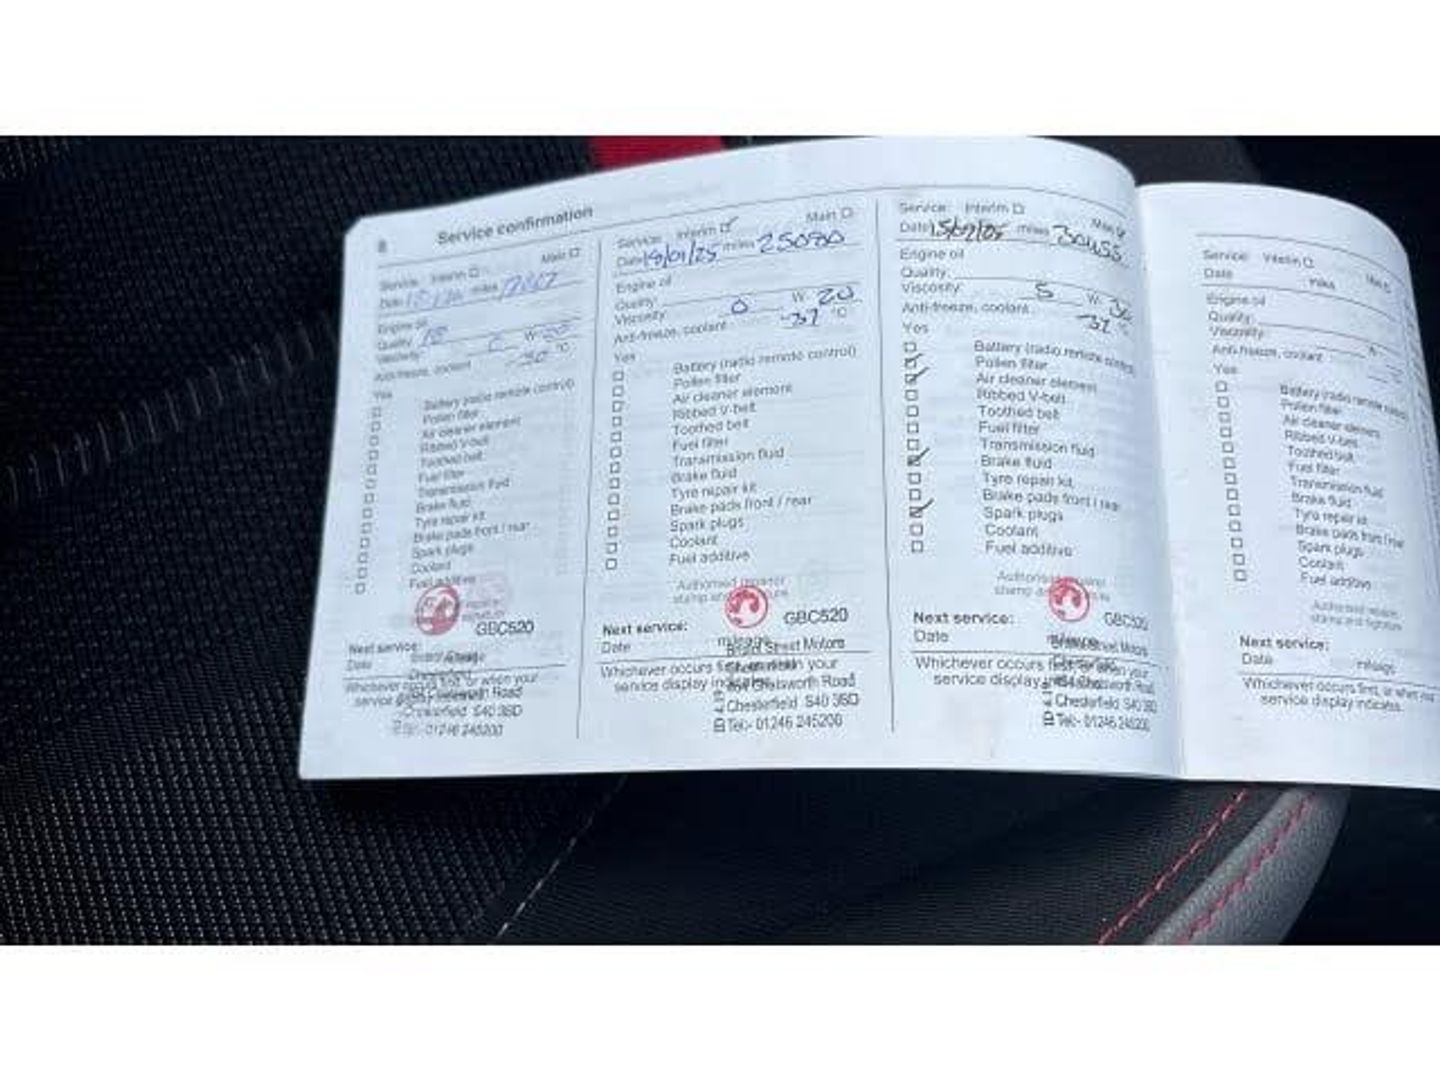 8 Service confirmation
Service: Interim Main
Date miles
Engine oil
Quality:
Viscosity: W-
Anti-freeze, coolant °C
Yes
Battery (radio remote control)
Pollen filter
Air cleaner element
Ribbed V-belt
Toothed belt
Fuel filter
Transmission fluid
Brake fluid
Tyre repair kit
Brake pads front / rear
Spark plugs
Coolant
Fuel additive
GBC520
Next service:
Date
Whichever occurs first, or when your
Chesterfield S40 3BD
Tel:- 01246 245200
Service: Interim Main
Date 19/01/25 miles
Engine oil
Quality:
Viscosity: 0 W- 20
Anti-freeze, coolant -37 °C
Yes
Battery (radio remote control)
Pollen filter
Air cleaner element
Ribbed V-belt
Toothed belt
Fuel filter
Transmission fluid
Brake fluid
Tyre repair kit
Brake pads front / rear
Spark plugs
Coolant
Fuel additive
Authorised repairer
GBC520
Next service:
Date mileage
Street Motors
Whichever occurs first, or when your
service display
Chatsworth Road
Chesterfield S40 3BD
Tel:- 01246 245200
Service: Interim Main
Date miles
Engine oil
Quality:
Viscosity: 5 W- 30
Anti-freeze, coolant -37 °C
Yes
Battery (radio remote control)
Pollen filter
Air cleaner element
Ribbed V-belt
Toothed belt
Fuel filter
Transmission fluid
Brake fluid
Tyre repair kit
Brake pads front / rear
Spark plugs
Coolant
Fuel additive
GBC520
Next service:
Date mileage
Whichever occurs first, or when your
service display
Chesterfield S40 3BD
Tel:- 01246 245200
Service: Interim Main
Date miles
Engine oil
Quality:
Viscosity:
Anti-freeze, coolant
Yes
Battery (radio remote control)
Pollen filter
Air cleaner element
Ribbed V-belt
Toothed belt
Fuel filter
Transmission fluid
Brake fluid
Tyre repair kit
Brake pads front / rear
Spark plugs
Coolant
Fuel additive
Authorised repairer
stamp and signature
Next service:
Date mileage
Whichever occurs first, or when your
service display indicates.